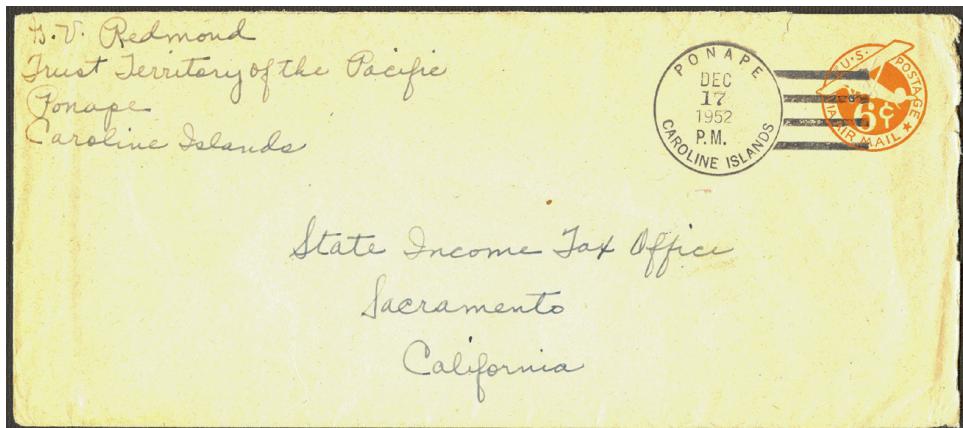 G. V. Redmond
Trust Territory of the Pacific
Ponape
Caroline Islands
PONAPE
DEC
17
1952
P.M.
CAROLINE ISLANDS
U.S. POSTAGE
6¢
VIA AIR MAIL
State Income Tax Office
Sacramento
California